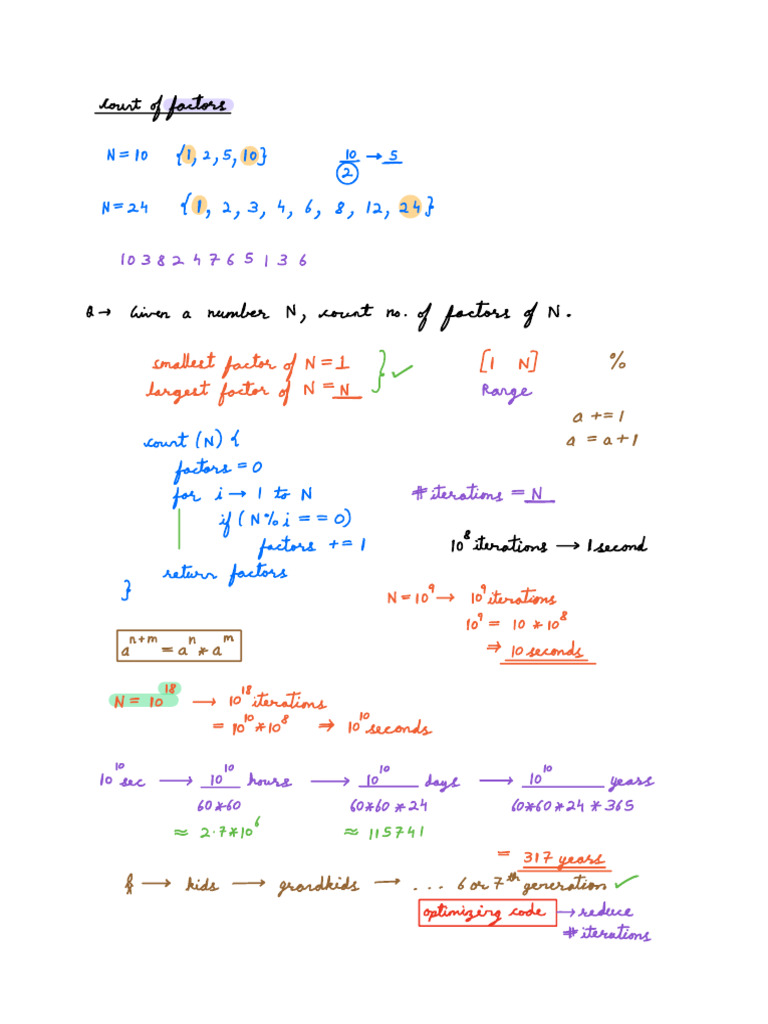 Count of factors
N = 10 {1, 2, 5, 10} 10/2 → 5
N = 24 {1, 2, 3, 4, 6, 8, 12, 24}
10382476513 6
Q → Given a number N, count no. of factors of N.
smallest factor of N = 1 } ✓ [1 N] %
largest factor of N = N Range
a += 1
a = a + 1
count (N) {
factors = 0
for i → 1 to N # iterations = N
if (N % i == 0)
factors += 1 10^8 iterations → 1 second
return factors
}
N = 10^9 → 10^9 iterations
10^9 = 10 * 10^8
⇒ 10 seconds
a^(n+m) = a^n * a^m
N = 10^18 → 10^18 iterations
= 10^10 * 10^8 ⇒ 10^10 seconds
10^10 sec → 10^10/(60*60) hours → 10^10/(60*60*24) days → 10^10/(60*60*24*365) years
≈ 2.7*10^6 ≈ 115741
= 317 years
→ kids → grandkids → ... 6 or 7th generation ✓
optimizing code → reduce
# iterations